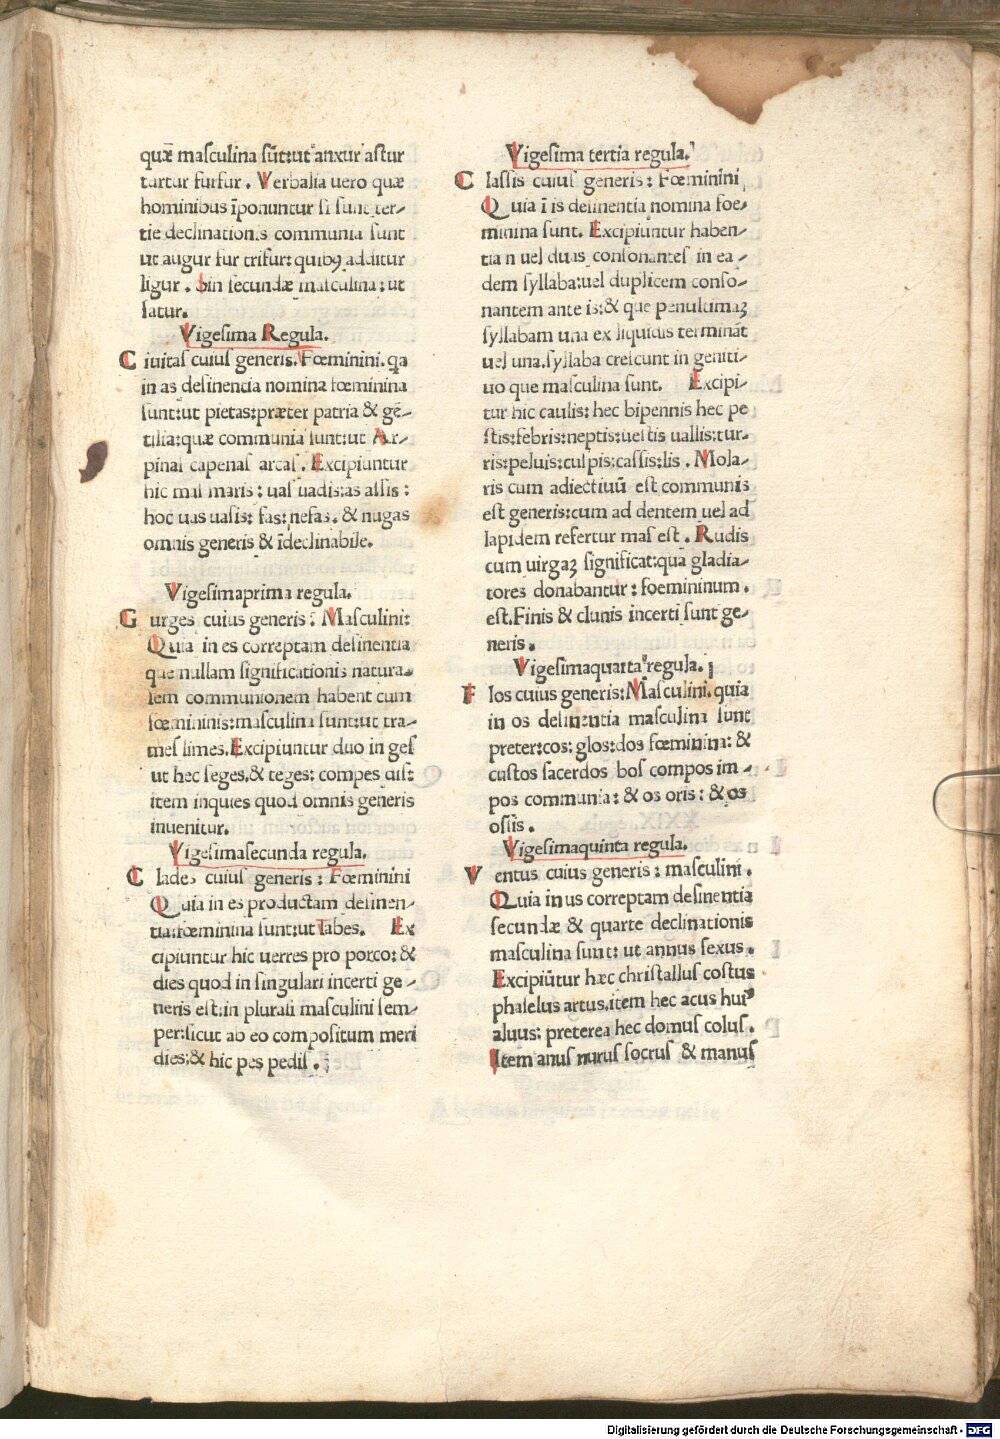 quæ masculina sūt:ut anxur astur
turtur furfur. Verbalia uero quæ
hominibus īponuntur si sunt ter-
tie declinationis communia sunt
ut augur fur trifur: quibꝰ additur
ligur. Sin secundæ masculina: ut
satur.
Vigesima Regula.
Ciuitas cuius generis. Fœminini. qa
in as desinencia nomina fœminina
sunt:ut pietas:præter patria & gē-
tilia:quæ communia sunt:ut Ar-
pinas capenas arcas. Excipiuntur
hic mas maris: uas uadis:as assis:
hoc uas uasis: fas:nefas. & nugas
omnis generis & īdeclinabile.
Vigesimaprima regula.
Gurges cuius generis: Masculini:
Quia in es correptam desinentia
que nullam significationis natura-
lem communionem habent cum
fœmininis:masculina sunt:ut tra-
mes limes. Excipiuntur duo in ges
ut hec seges. & teges: compes dis:
item inquies quod omnis generis
inuenitur.
Vigesimasecunda regula.
Clades cuius generis: Fœminini
Quia in es productam desinen-
tia:fœminina sunt:ut Tabes. Ex
cipiuntur hic uerres pro porco: &
dies quod in singulari incerti ge-
neris est:in plurali masculini sem-
per:sicut ab eo compositum meri
dies: & hic pes pedis.
Vigesima tertia regula.
Classis cuius generis: Fœminini
Quia ī is desinentia nomina foe-
minina sunt. Excipiuntur haben-
tia n uel duas consonantes in ea-
dem syllaba:uel duplicem conso-
nantem ante is: & que penultimaꝫ
syllabam una ex liquidis termināt
uel una syllaba crescunt in geniti-
uo que masculina sunt. Excipi-
tur hic caulis: hec bipennis hec pe
stis:febris:neptis:uestis uallis:tur-
ris:peluis:culpis:cassis:lis. Mola-
ris cum adiectiuū est communis
est generis:cum ad dentem uel ad
lapidem refertur mas est. Rudis
cum uirgaꝫ significat:qua gladia-
tores donabantur: foemininum.
est. Finis & clunis incerti sunt ge-
neris.
Vigesimaquarta regula.
Flos cuius generis: Masculini. quia
in os desinentia masculina sunt
preter:cos: glos:dos fœminina: &
custos sacerdos bos compos im-
pos communia: & os oris: & os
ossis.
Vigesimaquinta regula.
Ventus cuius generis: masculini.
Quia in us correptam desinentia
secundæ & quarte declinationis
masculina sunt: ut annus sexus.
Excipiūtur hæc christallus costus
phaselus artus. item hec acus huiꝰ
aluus: preterea hec domus colus.
Item anus nurus socrus & manus
Digitalisierung gefördert durch die Deutsche Forschungsgemeinschaft - DFG